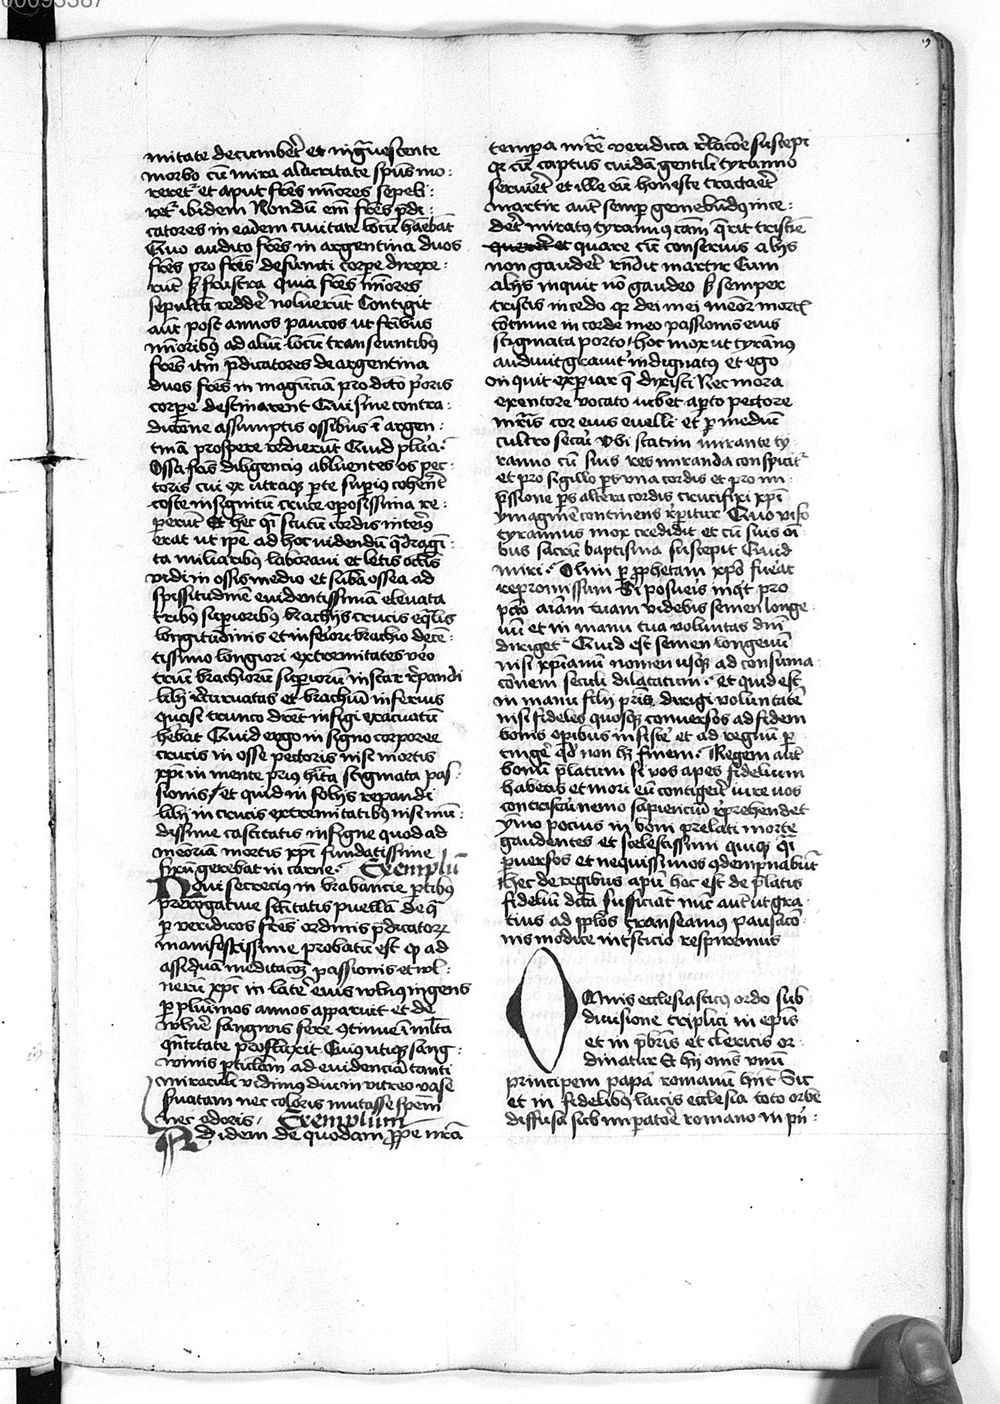 00093387
9
mitate decumber̄t et ing̃uescente
morbo cū mira alacritate spūs mo-
reret᷑ et aput fr̄es mīores sepeli-
ret᷑ ibidem Nondū em̄ fr̄es p̄di-
catores in eadem ciuitate locū habebāt
Quo audito fr̄es in argentina duos
fr̄es pro fr̄es defuncti corpe direxe-
rūt sꝫ frustra Quia fr̄es mīores
sepultū redder̄ noluerūt Contigit
aūt post annos paucos ut fr̄ibus
mīoribus ad aliū locū transeuntibꝰ
fr̄es itm̄ p̄dicatores de argentina
duos fr̄es in magūciā pro dicto p̄oris
corpe destinarent Qui sine contra-
dictōne assumptis ossibus ī argen-
tinā prospere redierūt Quid plura
Ossa fr̄is diligencius abluentes os pec-
toris cui ex utraqꝫ pte supiꝰ coherēt
coste insignitū cruce operosissima re-
perierūt Et hec q̄i scutū cordis interiꝰ
erat ut ip̄e ad hoc videndū q̄dragī-
ta miliaribus laboraui et letis oclis
vidi in ossis medio et subā ossea ad
spissitudinē euidentissimā eleuata
tribus supioribus brachijs crucis eq̄lis
longitudinis et inferiori brachio dece-
tissimo longiori extremitates vero
triū brachiorū supiorū instar repandi
lilij recuruatas et brachiū inferius
quasi trunco deret infigi exacuatū
hēbat Quid ergo in signo corporee
crucis in osse pectoris nisi mortis
xp̄i in mente priꝰ hīta stigmata pas-
sionis / et quid in folijs repandi
lilij in crucis extremitatibus nisi mū-
dissime castitatis insigne quod ad
meoriā mortis xp̄i fundatissime
firmū gerebat in carne Exemplū
Noui secreciꝰ in brabancie ptibꝰ
prerogatiue sc̄itatis puellā de q̄
p veridicos fr̄es ordinis p̄dicatorꝝ
manifestissime probatū est ꝙ ad
assiduā meditacōꝫ passionis et vl-
nerū xp̄i in later̄ eius vlnus ingens
p plurimos annos apparuit et de
vlner̄ sangwis fere ꝯtinue ī ml̄ta
q̄ntitate profluxit Cuiꝰ utiqꝫ sang-
winis pticlam ad euidenciā tanti
miraculi vidimus diu in vitreo vase
seruatam nec coloris mutasse specim̄
nec odoris / Exemplum
Ad idem de quodam pp̄e nr̄a
tempa mr̄e veridica relacōe suscepi
qꝫ cū captus cuidā gentili tyranno
seruier̄t et ille eū honeste tractaret
martir aut̄ semp gemebūdꝰ ince-
deret miratꝰ tyrannꝰ cām q̄rit tristicie
et quare cū conseruis alijs
non gauderet rn̄dit martir Cum
alijs inquit nō gaudeo sꝫ semper
tristis incedo qꝫ dei mei meōr mortē
cōtinue in corde meo passionis eius
stigmata porto / hoc mox ut tyrannꝰ
audiuit grauiter indignatꝰ et ego
inquit expiar q̄ dixisti Nec mora
exentore vocato iubet apto pectore
mr̄is cor eius euelli et p mediū
cultro secari Vbi statim mirante ty
ranno cū suis res miranda conspicit᷑
et pro sigillo ps vna cordis et pro im-
p̄ssione ps altera cordis crucifixi xp̄i
ymaginē continens reperitur Quo viso
tyrannus mox credidit et cū suis oī-
bus sacrū baptisma suscepit Quid
miri Olim p pphetam xp̄o fuerat
repromissum Si posueris inq̄t pro
pctō aīam tuam videbis semen longe-
uū et in manu tua voluntas dn̄i
diriget᷑ Quid est semen longeuū
nisi xp̄ianū nomen usqꝫ ad consuma-
cōnem seculi dilatatum et quid est
in manu filij pr̄is dirigi voluntatē
nisi fideles quosqꝫ conuersos ad fidem
bonis opibus insister̄ et ad regnū p-
tinger̄ qd̄ non hꝫ finem Regem aūt
bonū p̄latum si vos apes fidelium
habeatis et mori eū contigerit iure vos
contristari nemo sapienciū reprehendet
ymo pocius in boni prelati morte
gaudentes et scelestissimi quiqꝫ q̄i
puersos et nequissimos ꝯdempnabūt
hec de regibus apū hoc est de p̄latis
fidelū dicta sufficiāt nūc aūt ut gra-
cius ad ip̄los transeamus pausacō-
nis modice int̄sticio respiremus
Omnis ecclesiasticꝰ ordo sub
diuisione triplici in ep̄is
et in pbr̄is et clericis or-
dinatur Et hij om̄s vnū
principem papā romanū hn̄t Sic
et in fidelibus laicis ecclesia toto orbe
diffusa sub impatore romano in pri-